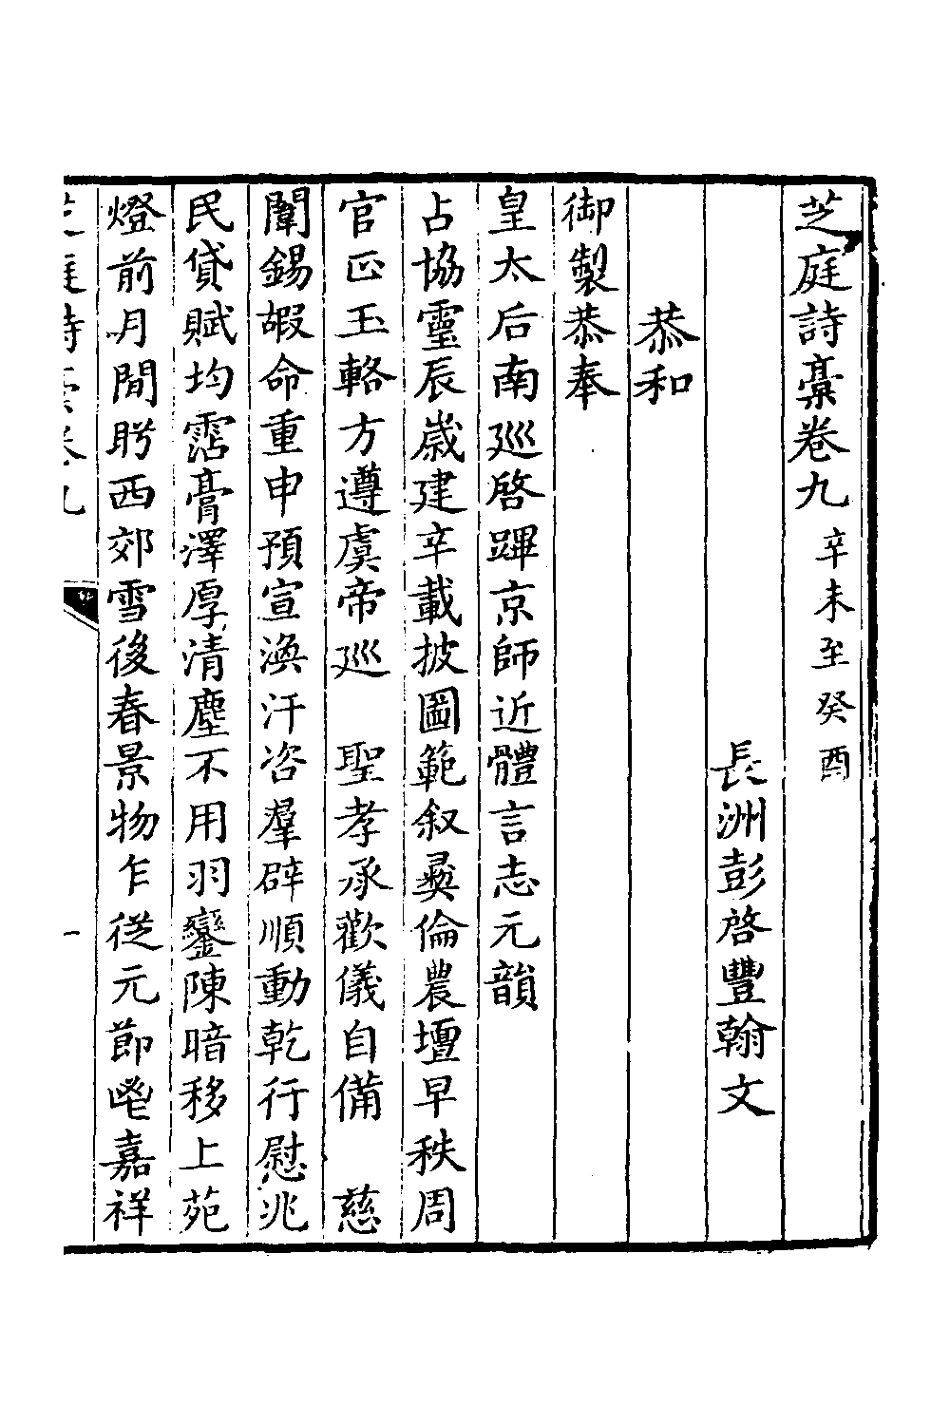 芝庭詩稾卷九 辛未至癸酉
長洲彭啓豐翰文
恭和
御製恭奉
皇太后南巡啓蹕京師近體言志元韻
占協靈辰歲建辛載披圖範叙彝倫農壇早秩周
官正玉輅方遵虞帝巡 聖孝承歡儀自備 慈
闈錫嘏命重申預宣渙汗咨羣辟順動乾行慰兆
民貸賦均霑膏澤厚清塵不用羽鑾陳暗移上苑
燈前月閒眝西郊雪後春景物乍從元節鬯嘉祥
芝庭詩稾卷九
一